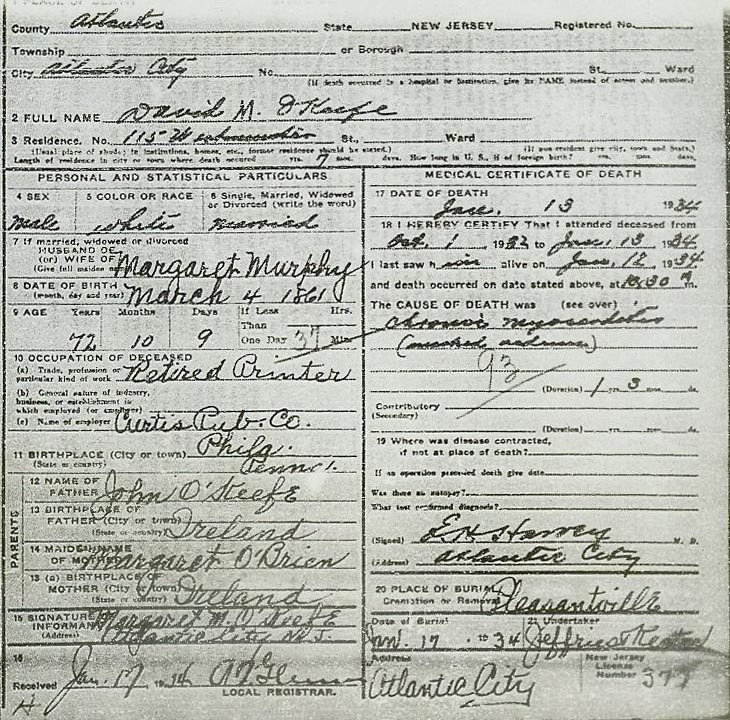 PLACE OF DEATH
County Atlantic State NEW JERSEY Registered No.
Township or Borough
City Atlantic City No. St., Ward
(If death occurred in a hospital or institution, give its NAME instead of street and number.)
2 FULL NAME David M. O'Keefe
3 Residence. No. 115 St., Ward
(Usual place of abode; in institutions, homes, etc., former residence should be stated.) (If non-resident give city, town and State)
Length of residence in city or town where death occurred yrs. 7 mos. days. How long in U. S., if of foreign birth? yrs. mos. days.
PERSONAL AND STATISTICAL PARTICULARS
4 SEX 5 COLOR OR RACE 6 Single, Married, Widowed or Divorced (write the word)
male white married
7 If married, widowed or divorced
HUSBAND OF
(or) WIFE OF Margaret Murphy
(Give full maiden name)
8 DATE OF BIRTH March 4 1861
(month, day and year)
9 AGE Years Months Days If Less Than One Day Hrs. Min.
72 10 9 37
10 OCCUPATION OF DECEASED
(a) Trade, profession or particular kind of work Retired Printer
(b) General nature of industry, business, or establishment in which employed (or employer)
(c) Name of employer Curtis Pub. Co.
11 BIRTHPLACE (City or town) Phila.
(State or country) Penna.
PARENTS
12 NAME OF FATHER John O'Keefe
13 BIRTHPLACE OF FATHER (City or town)
(State or country) Ireland
14 MAIDEN NAME OF MOTHER Margaret O'Brien
13 (a) BIRTHPLACE OF MOTHER (City or town)
(State or country) Ireland
15 SIGNATURE INFORMANT Margaret M. O'Keefe
(Address) Atlantic City N.J.
16
Received Jan. 17 1934
LOCAL REGISTRAR.
MEDICAL CERTIFICATE OF DEATH
17 DATE OF DEATH
Jan. 13 1934
18 I HEREBY CERTIFY That I attended deceased from
Oct. 1 1932 to Jan. 13 1934
I last saw him alive on Jan. 12 1934
and death occurred on date stated above, at m.
The CAUSE OF DEATH was (see over)
Chronic myocarditis
93
(Duration) 1 yrs. 3 mos. ds.
Contributory
(Secondary)
(Duration) yrs. mos. ds.
19 Where was disease contracted,
if not at place of death?
If an operation preceded death give date
Was there an autopsy?
What test confirmed diagnosis?
(Signed) E H Harvey M. D.
(Address) Atlantic City
20 PLACE OF BURIAL
Cremation or Removal Pleasantville
Date of Burial 21 Undertaker
Jan. 17 1934
Address New Jersey License Number 377
Atlantic City